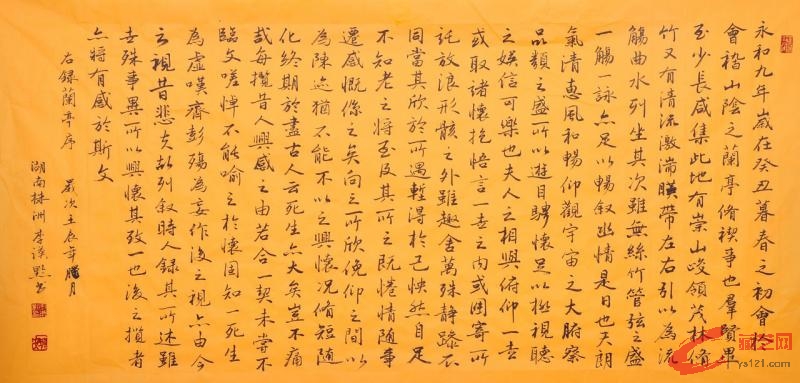 永和九年歲在癸丑暮春之初會於
會稽山陰之蘭亭脩禊事也羣賢畢
至少長咸集此地有崇山峻領茂林脩
竹又有清流激湍暎帶左右引以為流
觴曲水列坐其次雖無絲竹管弦之盛
一觴一詠亦足以暢敘幽情是日也天朗
氣清惠風和暢仰觀宇宙之大俯察
品類之盛所以遊目騁懷足以極視聽
之娛信可樂也夫人之相與俯仰一世
或取諸懷抱悟言一室之內或因寄所
託放浪形骸之外雖趣舍萬殊靜躁不
同當其欣於所遇暫得於己怏然自足
不知老之將至及其所之既惓情隨事
遷感慨係之矣向之所欣俛仰之間以
為陳迹猶不能不以之興懷況脩短隨
化終期於盡古人云死生亦大矣豈不痛
哉每攬昔人興感之由若合一契未嘗不
臨文嗟悼不能喻之於懷固知一死生
為虛嘆齊彭殤為妄作後之視亦由今
之視昔悲夫故列敘時人錄其所述雖
世殊事異所以興懷其致一也後之攬者
亦將有感於斯文
右錄蘭亭序 歲次壬辰年臘月
湖南株洲李漢書
ys121.com